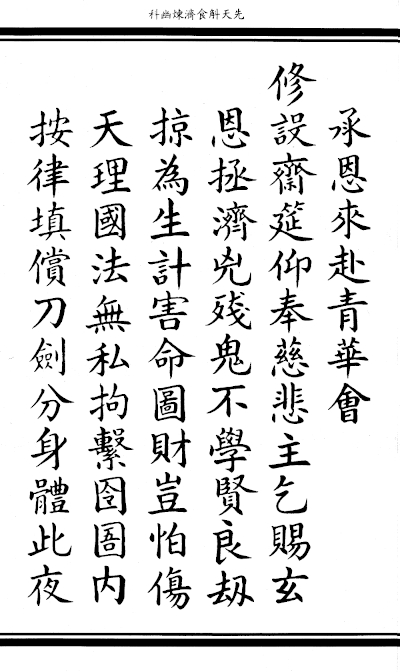 先天斛食濟煉幽科
承恩來赴青華會
修設齋筵仰奉慈悲主乞賜玄
恩拯濟兇殘鬼不學賢良刼
掠為生計害命圖財豈怕傷
天理國法無私拘繫囹圄内
按律填償刀劍分身體此夜